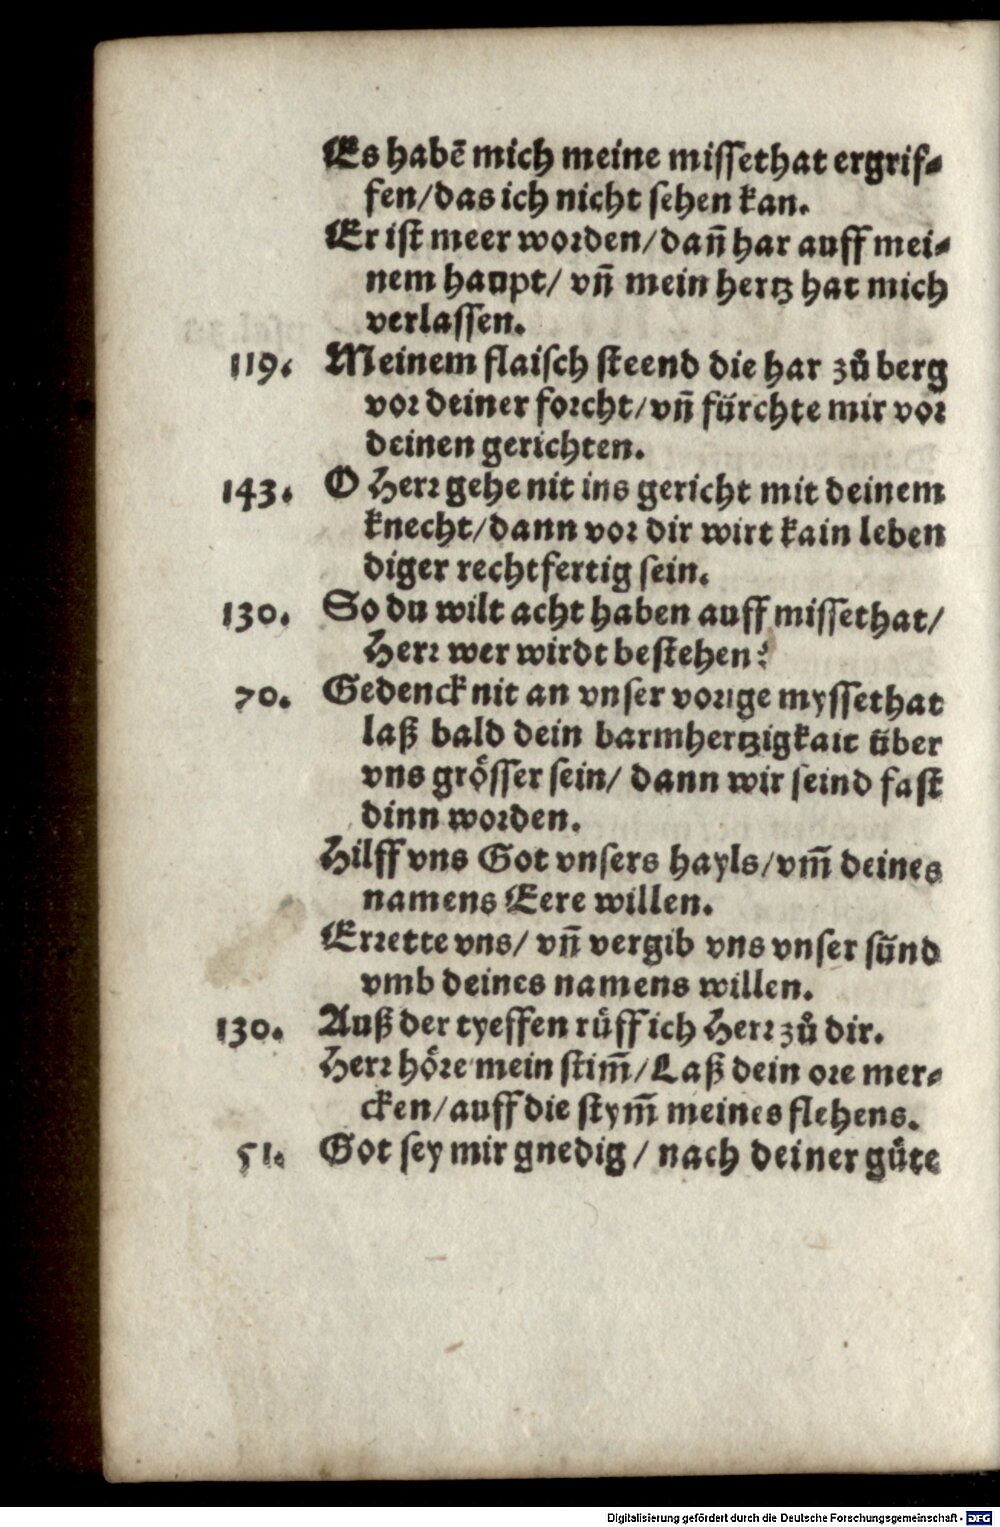 Es habē mich meine missethat ergrif-
fen/das ich nicht sehen kan.
Er ist meer worden/dañ har auff mei-
nem haupt/ vñ mein hertz hat mich
verlassen.
119. Meinem flaisch steend die har zů berg
vor deiner forcht/vñ fürchte mir vor
deinen gerichten.
143. O Herr gehe nit ins gericht mit deinem
knecht/dann vor dir wirt kain leben
diger rechtfertig sein.
130. So du wilt acht haben auff missethat/
Herr wer wirdt bestehen?
70. Gedenck nit an vnser vorige myssethat
laß bald dein barmhertzigkait über
vns grösser sein/ dann wir seind fast
dinn worden.
Hilff vns Got vnsers hayls/vm̃ deines
namens Eere willen.
Errette vns/ vñ vergib vns vnser sünd
vmb deines namens willen.
130. Auß der tyeffen rüff ich Herr zů dir.
Herr höre mein stim̃/Laß dein ore mer-
cken/auff die stym̃ meines flehens.
51. Got sey mir gnedig/ nach deiner güte
Digitalisierung gefördert durch die Deutsche Forschungsgemeinschaft - DFG